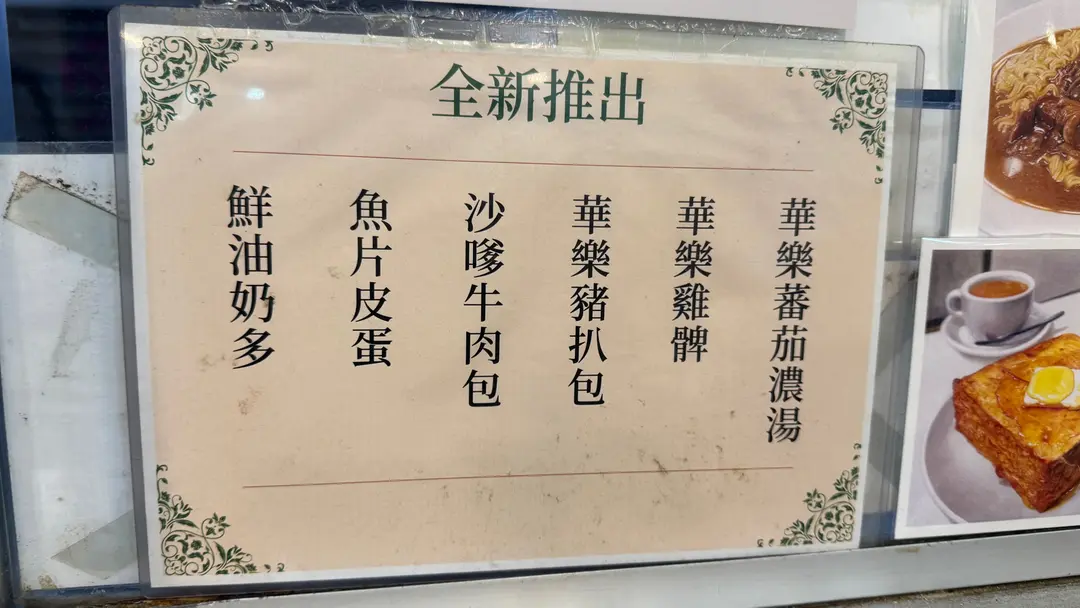 全新推出
華樂蕃茄濃湯
華樂雞髀
華樂豬扒包
沙嗲牛肉包
魚片皮蛋
鮮油奶多